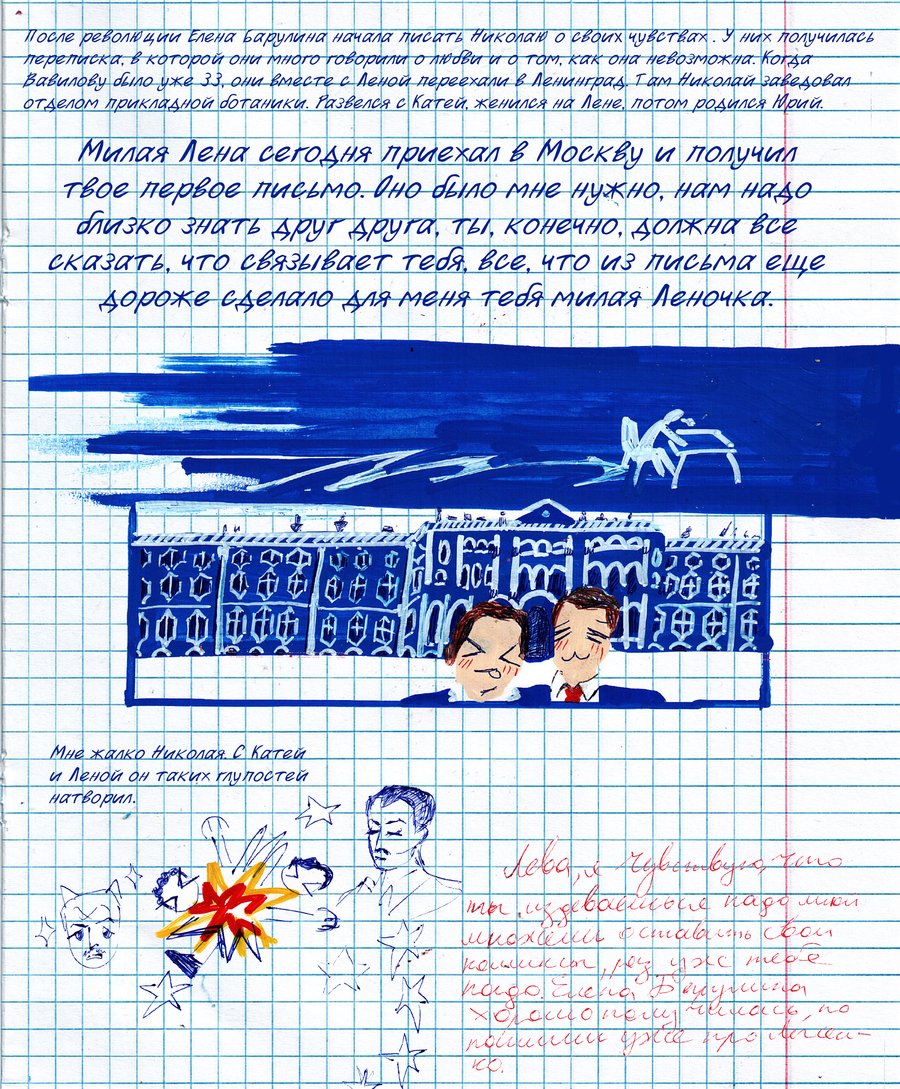 После революции Елена Барулина начала писать Николаю о своих чувствах. У них получилась
переписка, в которой они много говорили о любви и о том, как она невозможна. Когда
Вавилову было уже 33, они вместе с Леной переехали в Ленинград. Там Николай заведовал
отделом прикладной ботаники. Развелся с Катей, женился на Лене, потом родился Юрий.
Милая Лена сегодня приехал в Москву и получил
твое первое письмо. Оно было мне нужно, нам надо
близко знать друг друга, ты, конечно, должна все
сказать, что связывает тебя, все, что из письма еще
дороже сделало для меня тебя милая Леночка.
Мне жалко Николая. С Катей
и Леной он таких глупостей
натворил.
Лева, я чувствую, что
ты издеваешься надо мной
оставить свои
комиксы, раз уж тебе
надо. Елена Барулина
хорошо получилась, но
пошли уже про Лысен-
ко.